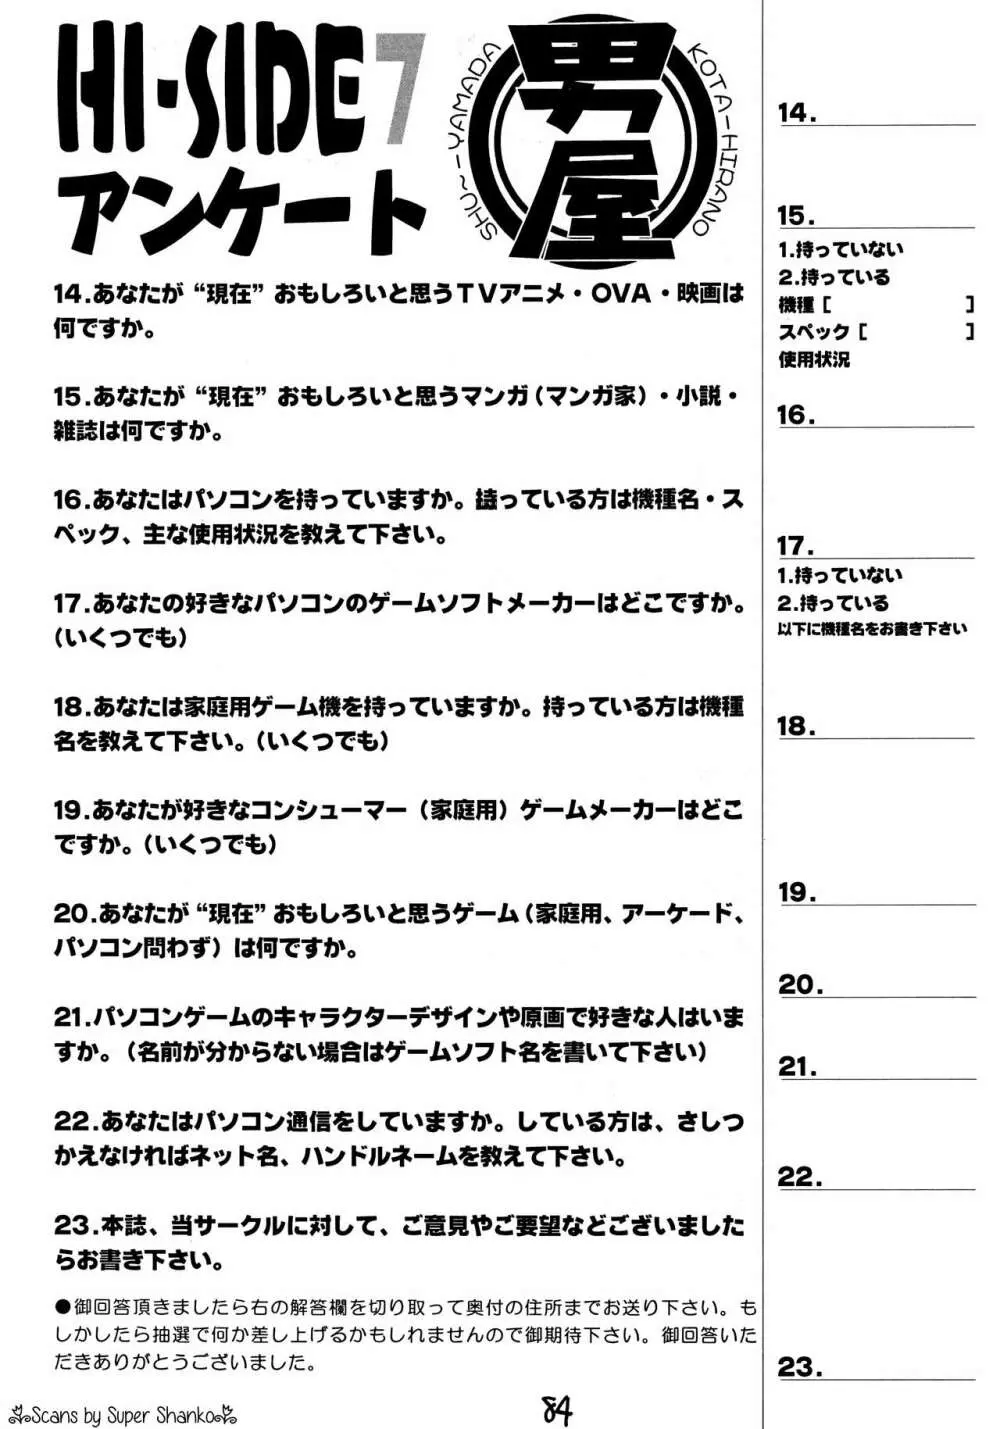 HI-SIDE7
アンケート
男屋
SHU~-YAMADA
KOTA-HIRANO
14.あなたが“現在”おもしろいと思うTVアニメ・OVA・映画は
何ですか。
15.あなたが“現在”おもしろいと思うマンガ(マンガ家)・小説・
雑誌は何ですか。
16.あなたはパソコンを持っていますか。持っている方は機種名・ス
ペック、主な使用状況を教えて下さい。
17.あなたの好きなパソコンのゲームソフトメーカーはどこですか。
(いくつでも)
18.あなたは家庭用ゲーム機を持っていますか。持っている方は機種
名を教えて下さい。(いくつでも)
19.あなたが好きなコンシューマー(家庭用)ゲームメーカーはどこ
ですか。(いくつでも)
20.あなたが“現在”おもしろいと思うゲーム(家庭用、アーケード、
パソコン問わず)は何ですか。
21.パソコンゲームのキャラクターデザインや原画で好きな人はいま
すか。(名前が分からない場合はゲームソフト名を書いて下さい)
22.あなたはパソコン通信をしていますか。している方は、さしつ
かえなければネット名、ハンドルネームを教えて下さい。
23.本誌、当サークルに対して、ご意見やご要望などございました
らお書き下さい。
●御回答頂きましたら右の解答欄を切り取って奥付の住所までお送り下さい。も
しかしたら抽選で何か差し上げるかもしれませんので御期待下さい。御回答いた
だきありがとうございました。
14.
15.
1.持っていない
2.持っている
機種[ ]
スペック[ ]
使用状況
16.
17.
1.持っていない
2.持っている
以下に機種名をお書き下さい
18.
19.
20.
21.
22.
23.
Scans by Super Shanko
84